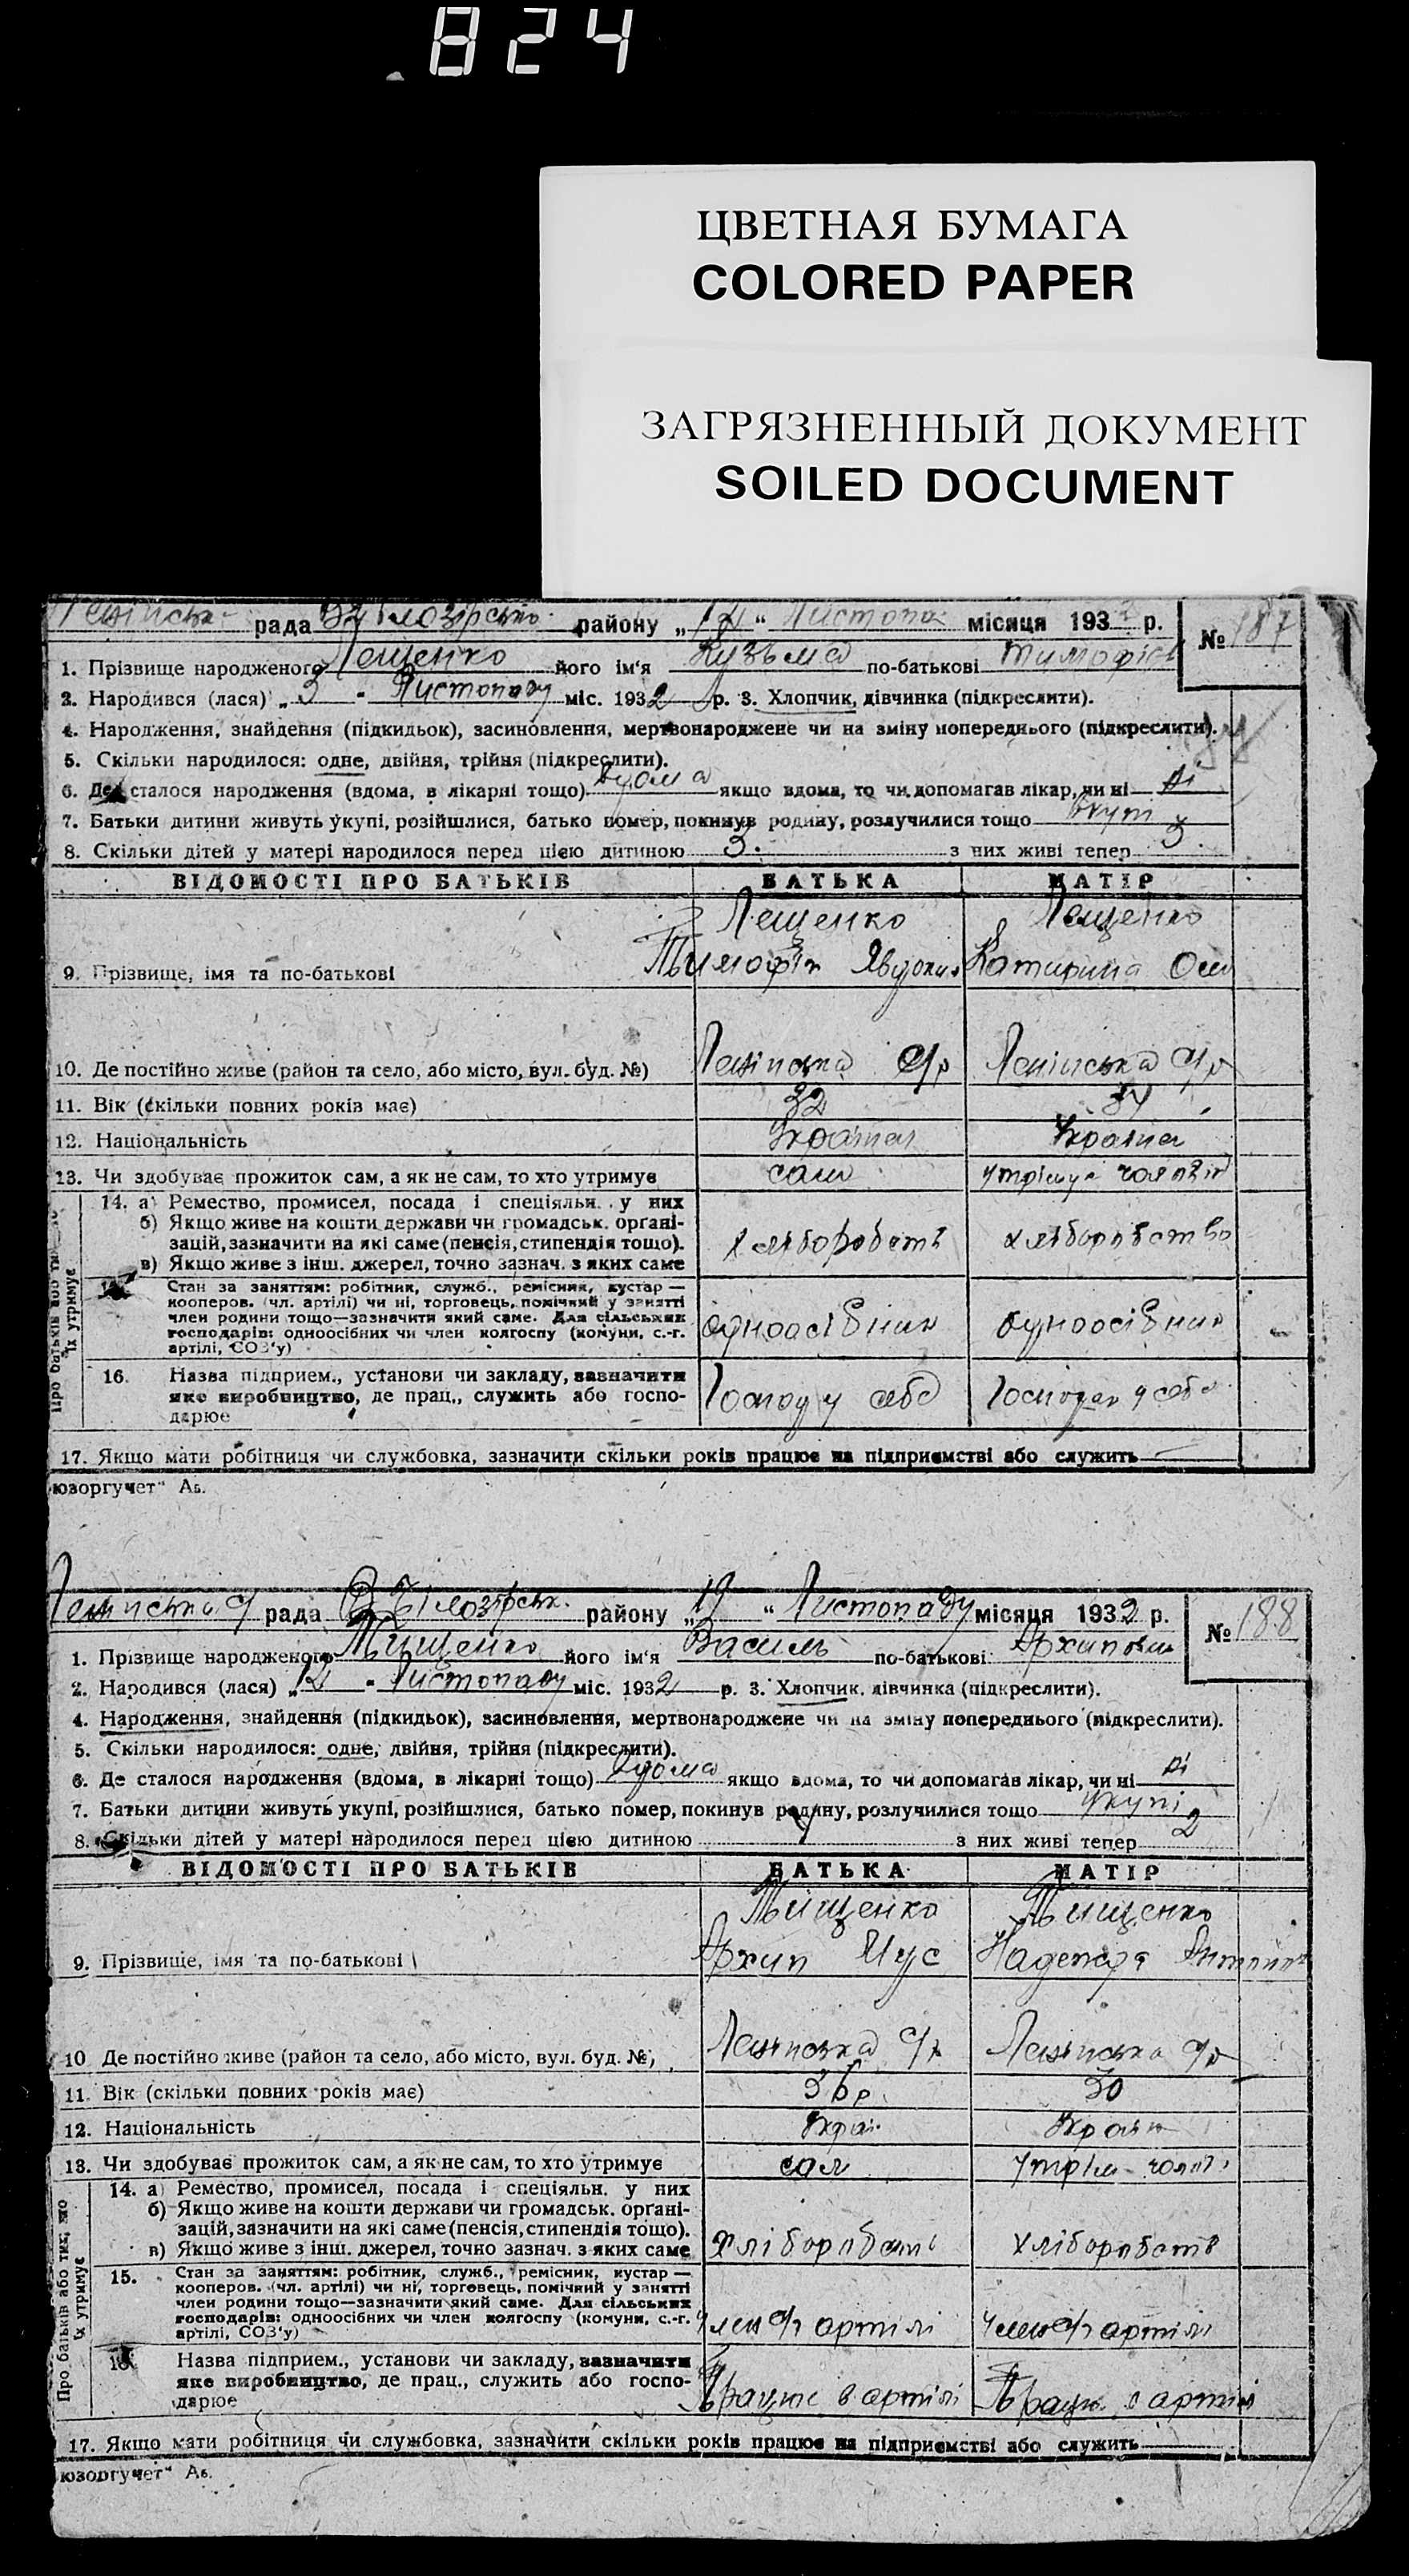 824
ЦВЕТНАЯ БУМАГА
COLORED PAPER
ЗАГРЯЗНЕННЫЙ ДОКУМЕНТ
SOILED DOCUMENT
рада району „ “ Листопа місяця 193 р. № 187
1. Прізвище народженого Лещенко його ім'я Кузьма по-батькові Тимофієв
2. Народився (лася) „ 3 " Листопаду міс. 1932 р. 3. Хлопчик, дівчинка (підкреслити).
4. Народження, знайдення (підкидьок), засиновлення, мертвонароджене чи на зміну попереднього (підкреслити).
5. Скільки народилося: одне, двійня, трійня (підкреслити).
6. Де сталося народження (вдома, в лікарні тощо) вдома якщо вдома, то чи допомагав лікар, чи ні ні
7. Батьки дитини живуть укупі, розійшлися, батько помер, покинув родину, розлучилися тощо вкупі
8. Скільки дітей у матері народилося перед цією дитиною 3. з них живі тепер 3
ВІДОМОСТІ ПРО БАТЬКІВ БАТЬКА МАТІР
Лещенко Лещенко
9. Прізвище, імя та по-батькові Тимофій Явдоким Катирина
10. Де постійно живе (район та село, або місто, вул. буд. №) Ленінська с/р Ленінська с/р
11. Вік (скільки повних років має) 32
12. Національність Українец Украіна
13. Чи здобуває прожиток сам, а як не сам, то хто утримує сам утрімує чоловік
14. а) Ремество, промисел, посада і спеціяльн. у них
б) Якщо живе на кошти держави чи громадськ. органі-
зацій, зазначити на які саме (пенсія, стипендія тощо).
в) Якщо живе з інш. джерел, точно зазнач. з яких саме
хліборобств хліборобство
Про батьків або тих, що їх утримує
Стан за заняттям: робітник, служб., ремісник, кустар —
кооперов. (чл. артілі) чи ні, торговець, помічний у занятті
член родини тощо—зазначити який саме. Для сільських
господарів: одноосібних чи член колгоспу (комуни, с.-г.
артілі, СОЗ'у)
одноосібник одноосібник
16. Назва підприєм., установи чи закладу, зазначити
яке виробництво, де прац., служить або госпо-
дарює
Господ у себе Господар у себе
17. Якщо мати робітниця чи службовка, зазначити скільки років працює на підприємстві або служить
юзоргучет" Ав.
Ленінська с/ рада В Білозірськ. району „19 “ Листопаду місяця 1932 р. № 188
1. Прізвище народженого Тищенко його ім'я Василь по-батькові Архипович
2. Народився (лася) „12 " Листопаду міс. 1932 р. 3. Хлопчик, дівчинка (підкреслити).
4. Народження, знайдення (підкидьок), засиновлення, мертвонароджене чи на зміну попереднього (підкреслити).
5. Скільки народилося: одне, двійня, трійня (підкреслити).
6. Де сталося народження (вдома, в лікарні тощо) вдома якщо вдома, то чи допомагав лікар, чи ні ні
7. Батьки дитини живуть укупі, розійшлися, батько помер, покинув родину, розлучилися тощо укупі
8. Скільки дітей у матері народилося перед цією дитиною з них живі тепер 2
ВІДОМОСТІ ПРО БАТЬКІВ БАТЬКА МАТІР
Тищенко Тищенко
9. Прізвище, імя та по-батькові Архип Надежда
10 Де постійно живе (район та село, або місто, вул. буд. №) Ленінська с/р Ленінська с/р
11. Вік (скільки повних років має) 36 р. 30
12. Національність Украі. Україн
13. Чи здобуває прожиток сам, а як не сам, то хто утримує сам утрім чолов
14. а) Ремество, промисел, посада і спеціяльн. у них
б) Якщо живе на кошти держави чи громадськ. органі-
зацій, зазначити на які саме (пенсія, стипендія тощо).
в) Якщо живе з інш. джерел, точно зазнач. з яких саме
хліборобств хліборобств
Про батьків або тих, що їх утримує
15. Стан за заняттям: робітник, служб., ремісник, кустар —
кооперов. (чл. артілі) чи ні, торговець, помічний у занятті
член родини тощо—зазначити який саме. Для сільських
господарів: одноосібних чи член колгоспу (комуни, с.-г.
артілі, СОЗ'у)
член с/г артілі член с/г артілі
Назва підприєм., установи чи закладу, зазначити
яке виробництво, де прац., служить або госпо-
дарює
Працює в артілі Працю. в артілі
17. Якщо мати робітниця чи службовка, зазначити скільки років працює на підприємстві або служить
юзоргучет" Ав.